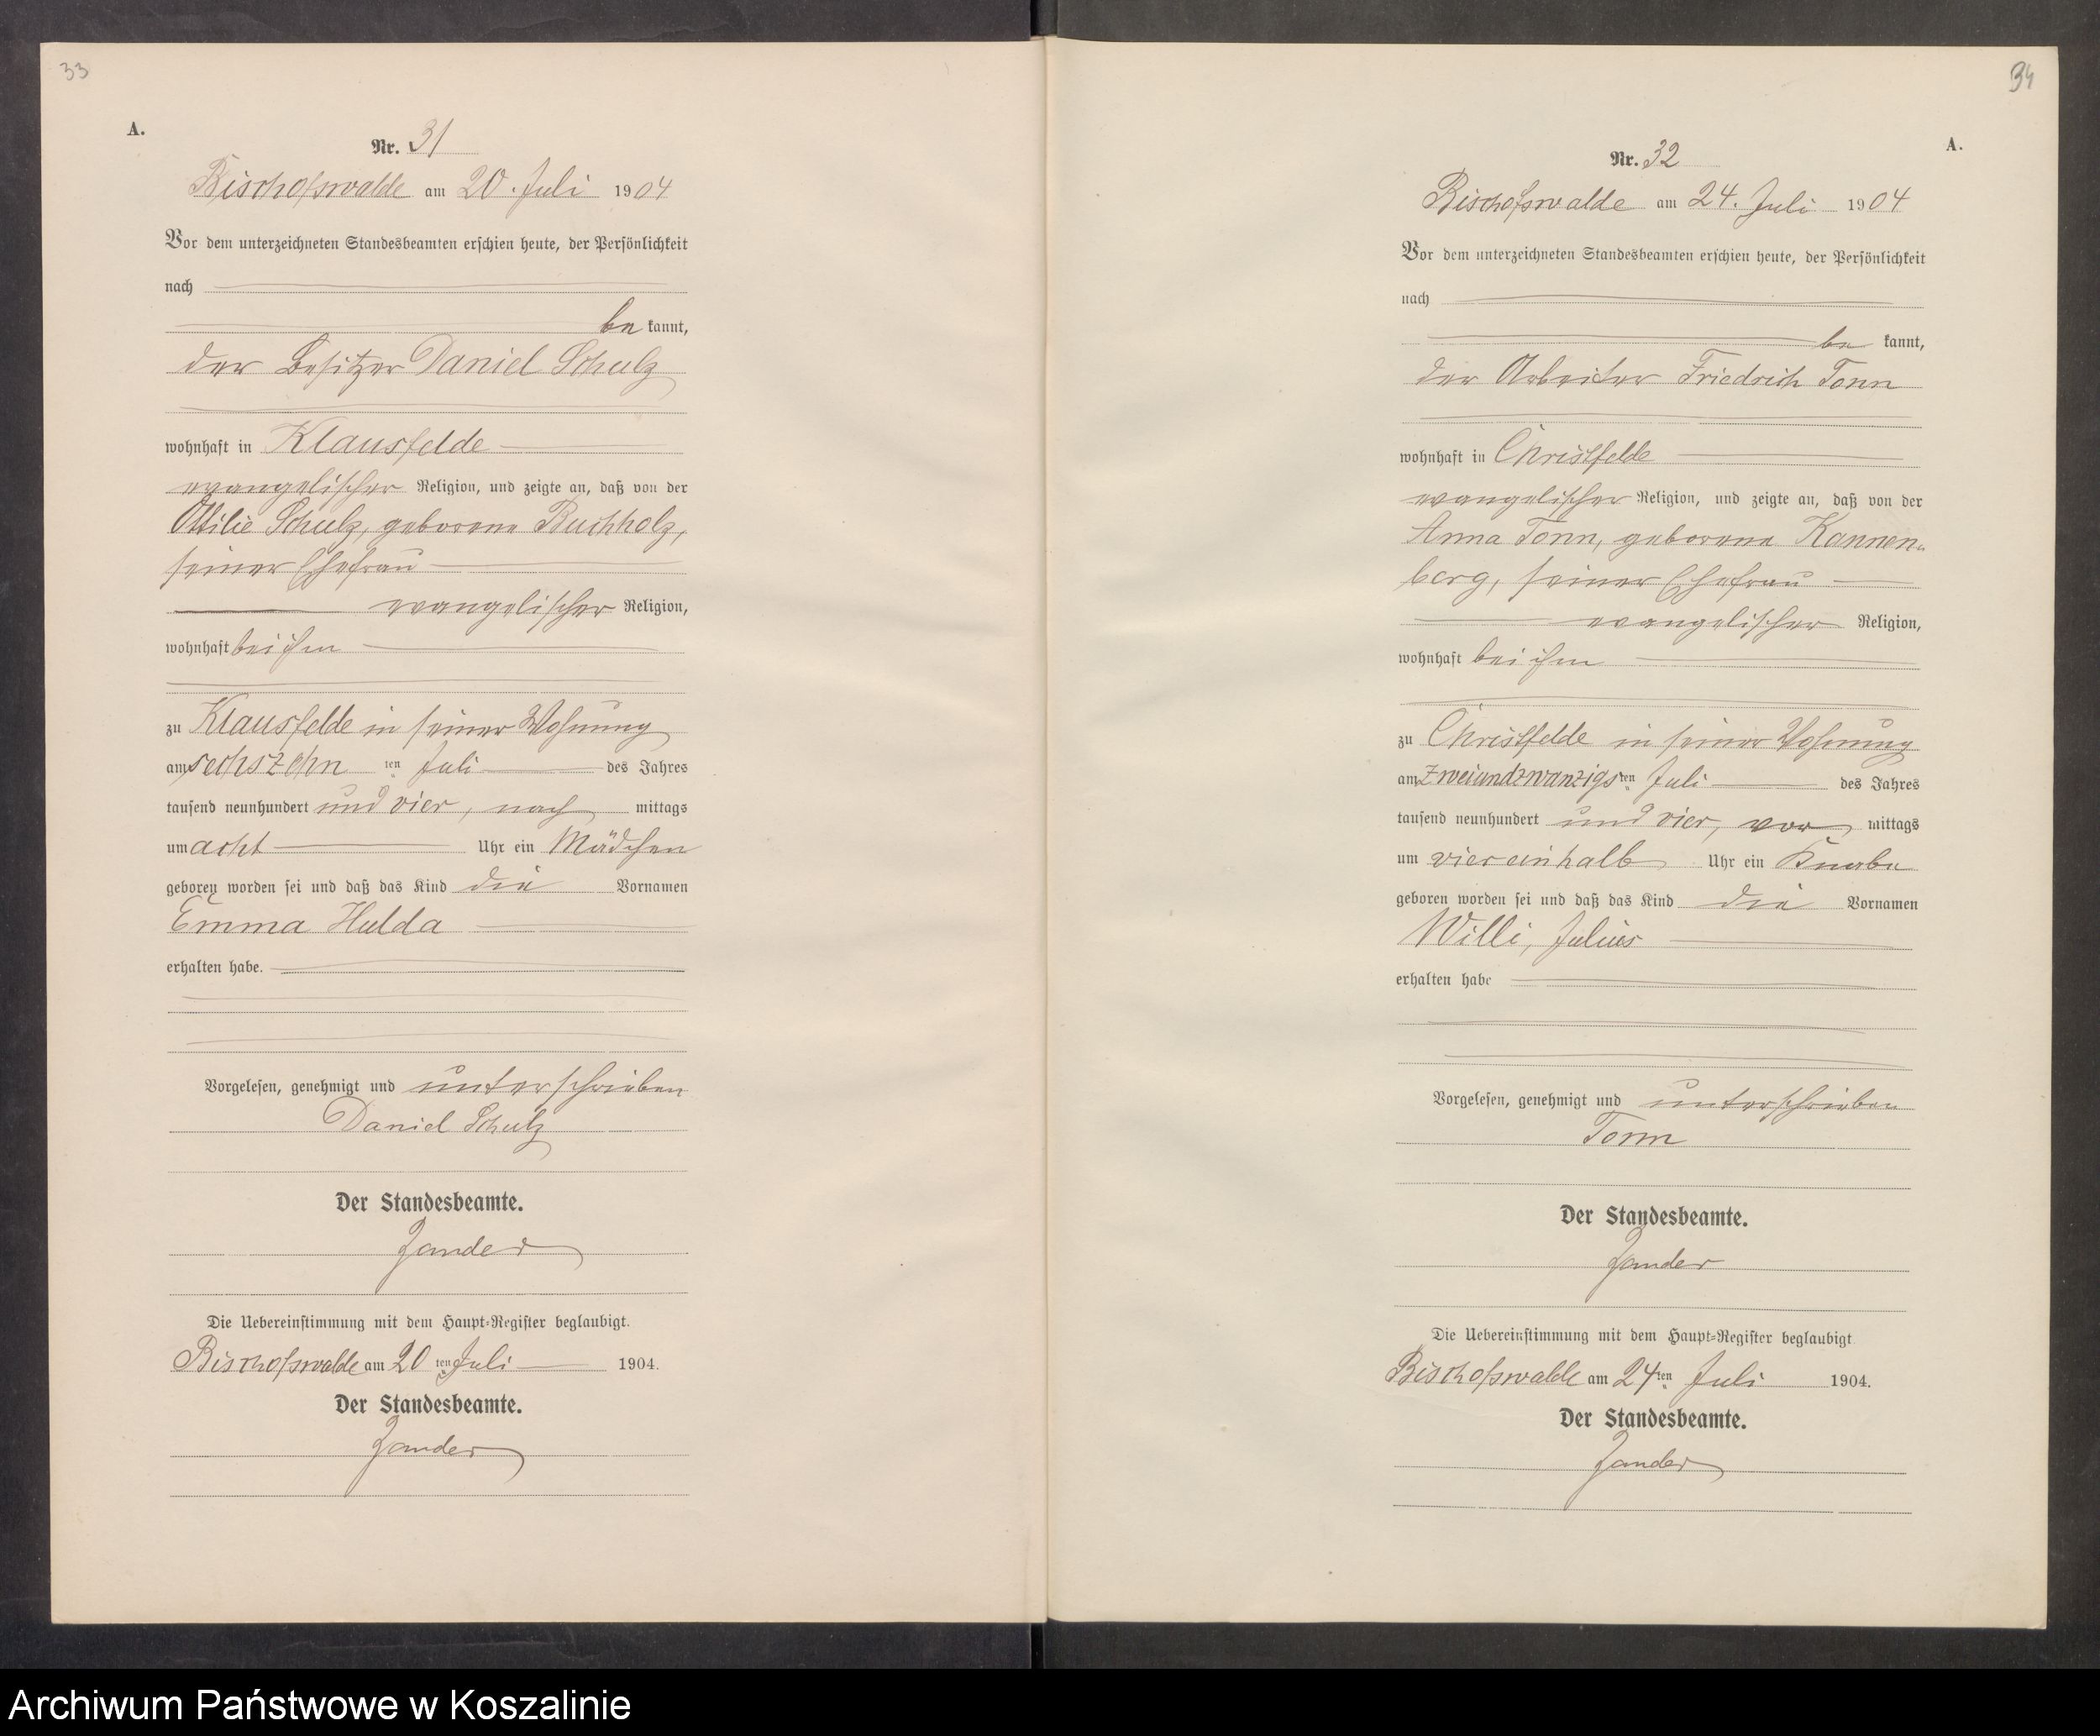 33
A.
Nr. 31
Bischofswalde am 20. Juli 1904
Vor dem unterzeichneten Standesbeamten erschien heute, der Persönlichkeit
nach
be kannt,
der Besitzer Daniel Schulz
wohnhaft in Klausfelde
evangelischer Religion, und zeigte an, daß von der
Ottilie Schulz, geborene Buchholz,
seiner Ehefrau
evangelischer Religion,
wohnhaft bei ihm
zu Klausfelde in seiner Wohnung
am sechszehn ten Juli des Jahres
tausend neunhundert und vier, nach mittags
um acht Uhr ein Mädchen
geboren worden sei und daß das Kind die Vornamen
Emma Hulda
erhalten habe.
Vorgelesen, genehmigt und unterschrieben
Daniel Schulz
Der Standesbeamte.
Zander
Die Uebereinstimmung mit dem Haupt-Register beglaubigt.
Bischofswalde am 20 ten Juli 1904.
Der Standesbeamte.
Zander
34
A.
Nr. 32
Bischofswalde am 24. Juli 1904
Vor dem unterzeichneten Standesbeamten erschien heute, der Persönlichkeit
nach
be kannt,
der Arbeiter Friedrich Tonn
wohnhaft in Christfelde
evangelischer Religion, und zeigte an, daß von der
Anna Tonn, geborene Kannen-
berg, seiner Ehefrau
evangelischer Religion,
wohnhaft bei ihm
zu Christfelde in seiner Wohnung
am zweiundzwanzigs ten Juli des Jahres
tausend neunhundert und vier, vor mittags
um vier einhalb Uhr ein Knabe
geboren worden sei und daß das Kind die Vornamen
Willi, Julius
erhalten habe
Vorgelesen, genehmigt und unterschrieben
Tonn
Der Standesbeamte.
Zander
Die Uebereinstimmung mit dem Haupt-Register beglaubigt
Bischofswalde am 24 ten Juli 1904.
Der Standesbeamte.
Zander
Archiwum Państwowe w Koszalinie